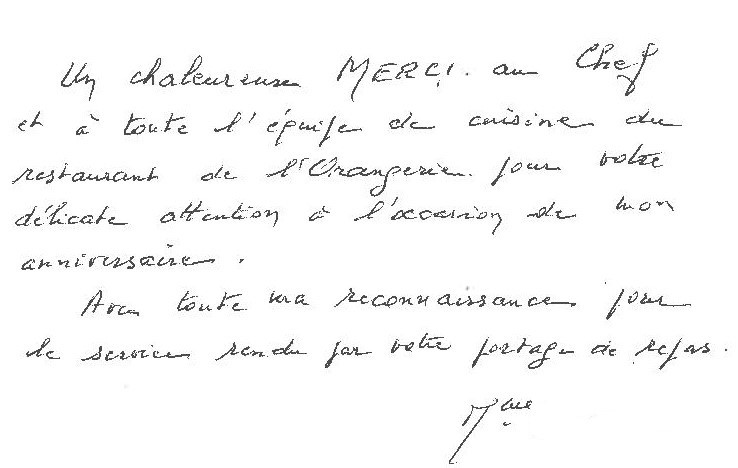 Un chaleureuse MERCI. au Chef
et à toute l'équipe de cuisine du
restaurant de l'Orangerie pour votre
délicate attention à l'occasion de mon
anniversaire.
Avec toute ma reconnaissance pour
le service rendu par votre portage de repas.
Mme